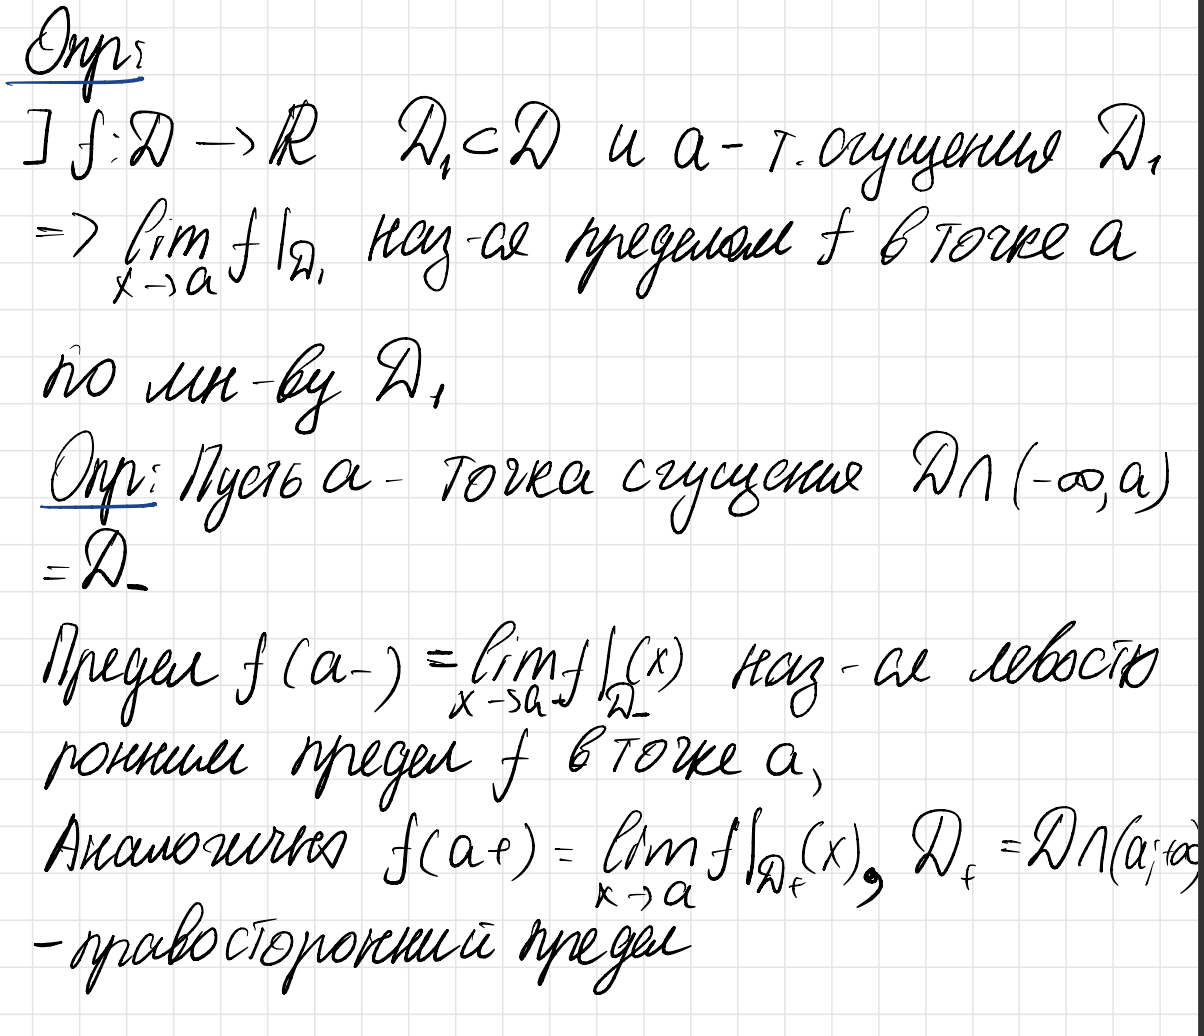 Опр:
] f: D → ℝ D₁ ⊂ D и a - т. сгущения D₁
=> lim f|D₁ наз-ся пределом f в точке a
x→a
по мн-ву D₁
Опр: Пусть a - точка сгущения D ∩ (-∞, a)
= D₋
Предел f(a-) = lim f|D₋(x) наз-ся левосто
x→a-
ронним предел f в точке a,
Аналогично f(a+) = lim f|D₊(x), D₊ = D ∩ (a; +∞)
x→a
- правосторонний предел